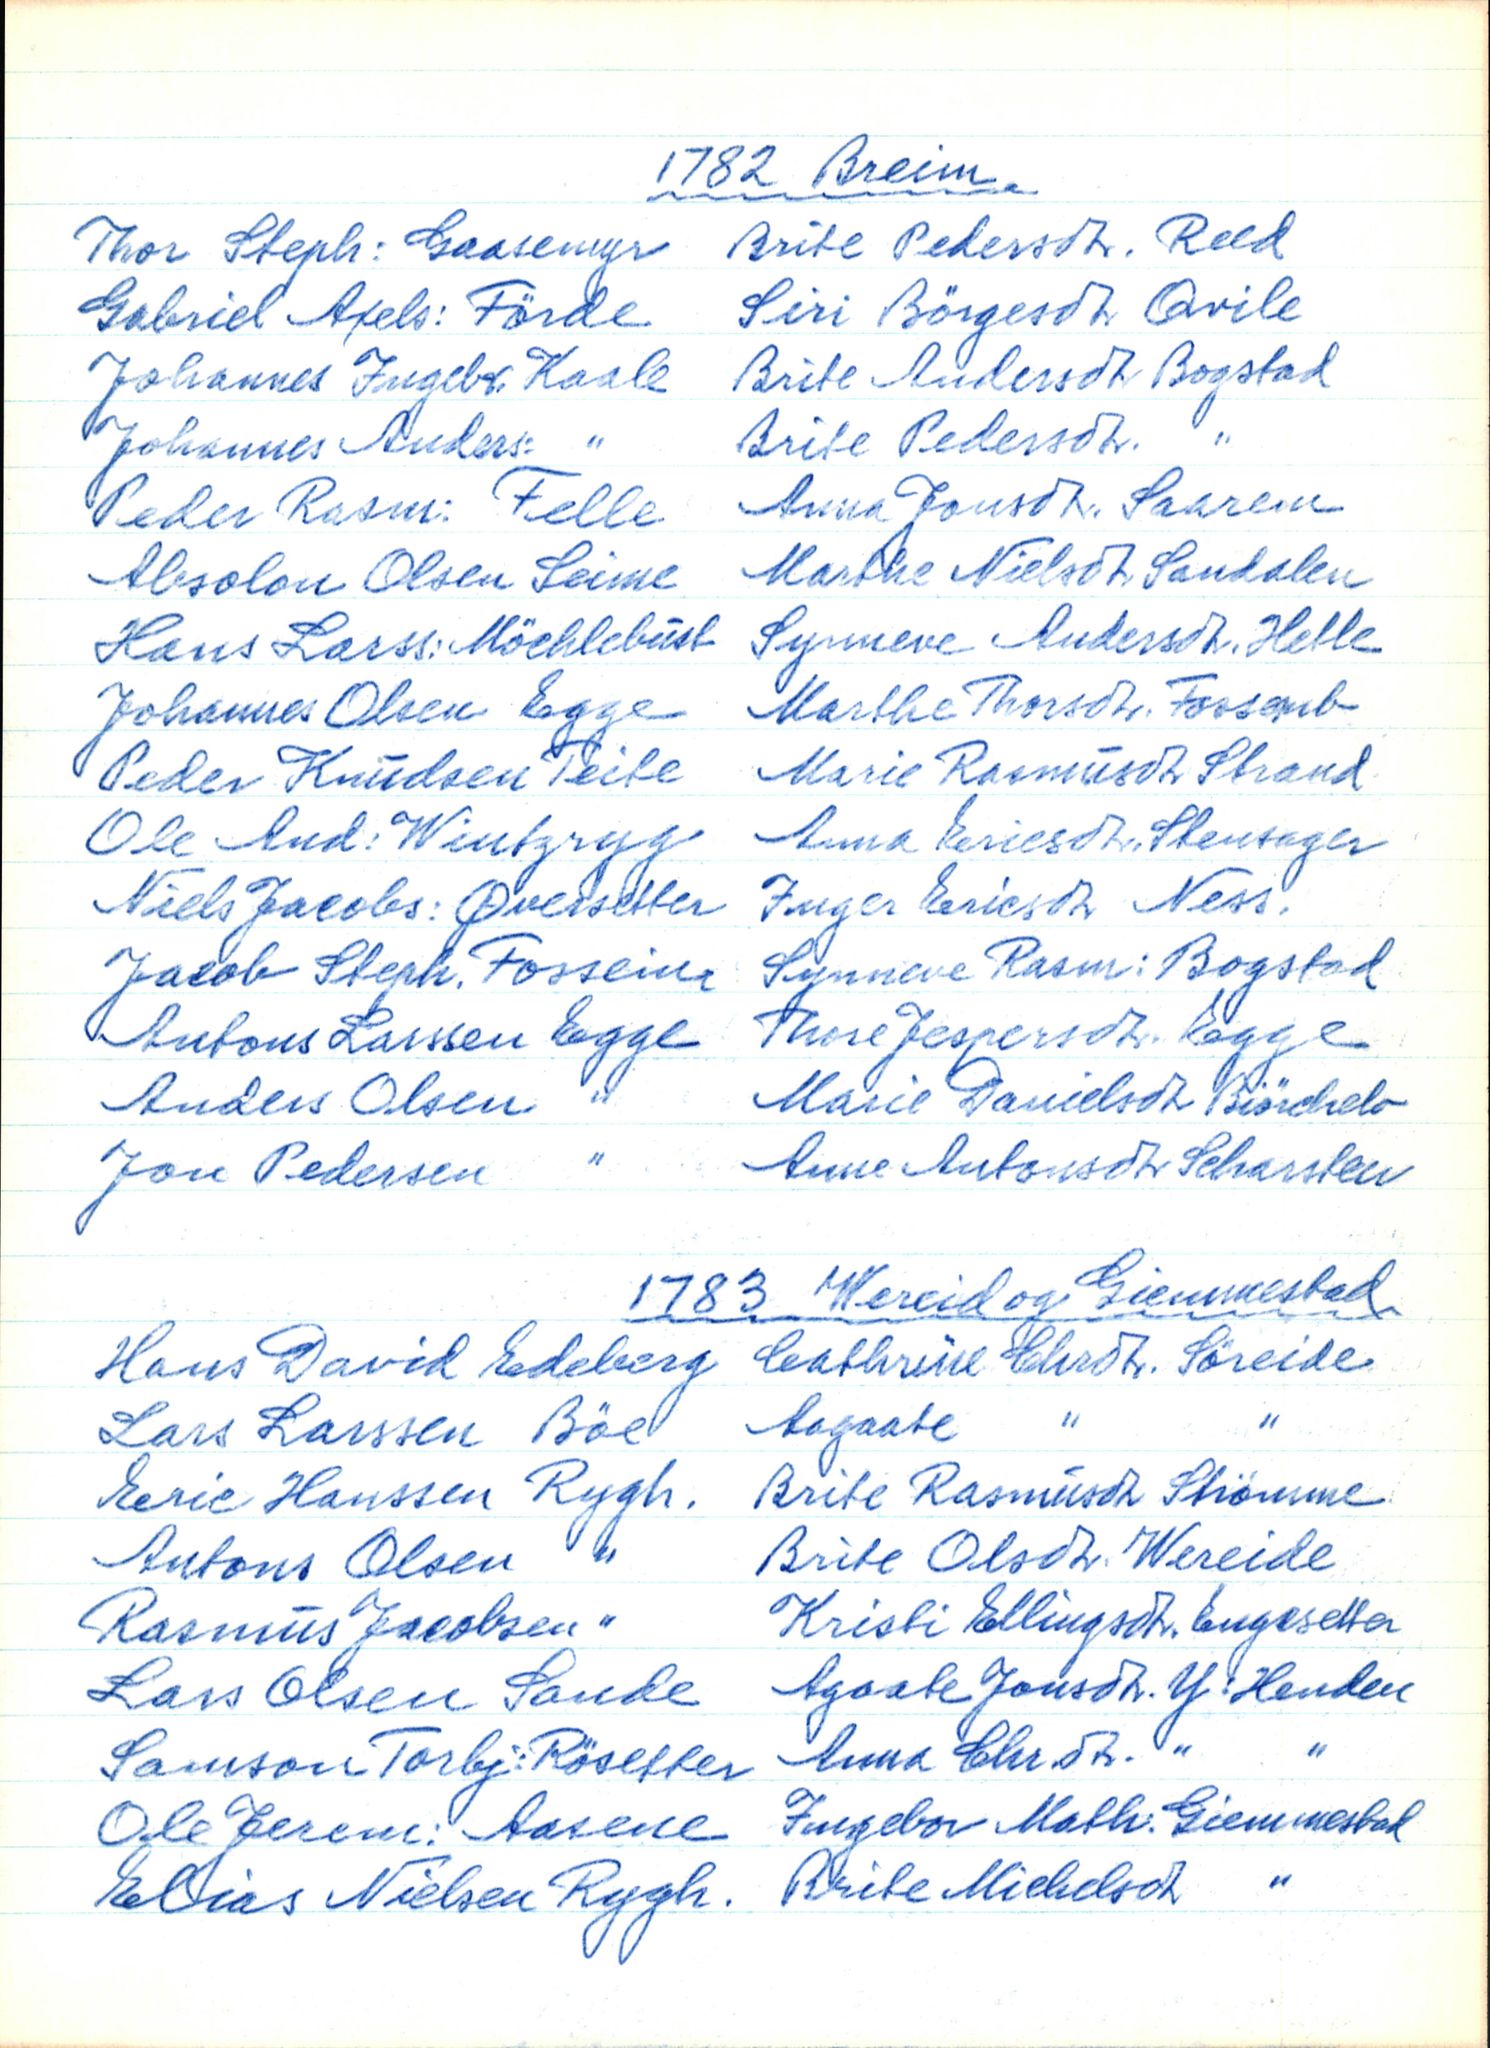 1782 Breim
Thor Steph: Gaasemyr Brite Pedersdt. Reed
Gabriel Axels: Förde Siri Börgesdt. Qvile
Johannes Ingebr. Kaale Brite Andersdt. Bogstad
Johannes Anders: " Brite Pedersdt. "
Peder Rasm: Felle Anna Jonsdt. Saarem
Absolon Olsen Seime Marthe Nielsdt. Sandalen
Hans Larss: Möchlebust Synneve Andersdt. Hetle
Johannes Olsen Egge Marthe Thorsdt.
Peder Knudsen Teite Marie Rasmusdt. Strand
Ole And: Anna Ericsdt. Stensager
Niels Jacobs: Qversetter Inger Ericsdt. Ness.
Jacob Steph. Fosseim Synneve Rasm: Bogstad
Antons Larssen Egge Thore Jespersdt. Egge
Anders Olsen " Marie Danielsdt. Biörchelo
Jon Pedersen " Anne Antonsdt. Scharsten
1783 Wereid og Giemmestad
Hans David Edeberg Cathrine Chrdt. Söreide
Lars Larssen Böe Aagaate " "
Eric Hanssen Rygh. Brite Rasmusdt. Strömme
Antons Olsen " Brite Olsdt. Wereide
Rasmus Jacobsen " Kristi Ellingsdt. Engesetter
Lars Olsen Sande Agaate Jonsdt. Y: Henden
Samson Torbj: Rösetter Anna Chr.dt. " "
Ole Jerem: Aasene Ingebor Math: Giemmestad
Elias Nielsen Rygh. Brite Michelsdt. "